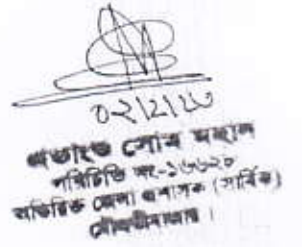 ০২/১২/২০
প্রভাংশু সোম মহান
পরিচিতি নং-১৬৬২০
অতিরিক্ত জেলা প্রশাসক (সার্বিক)
মৌলভীবাজার।